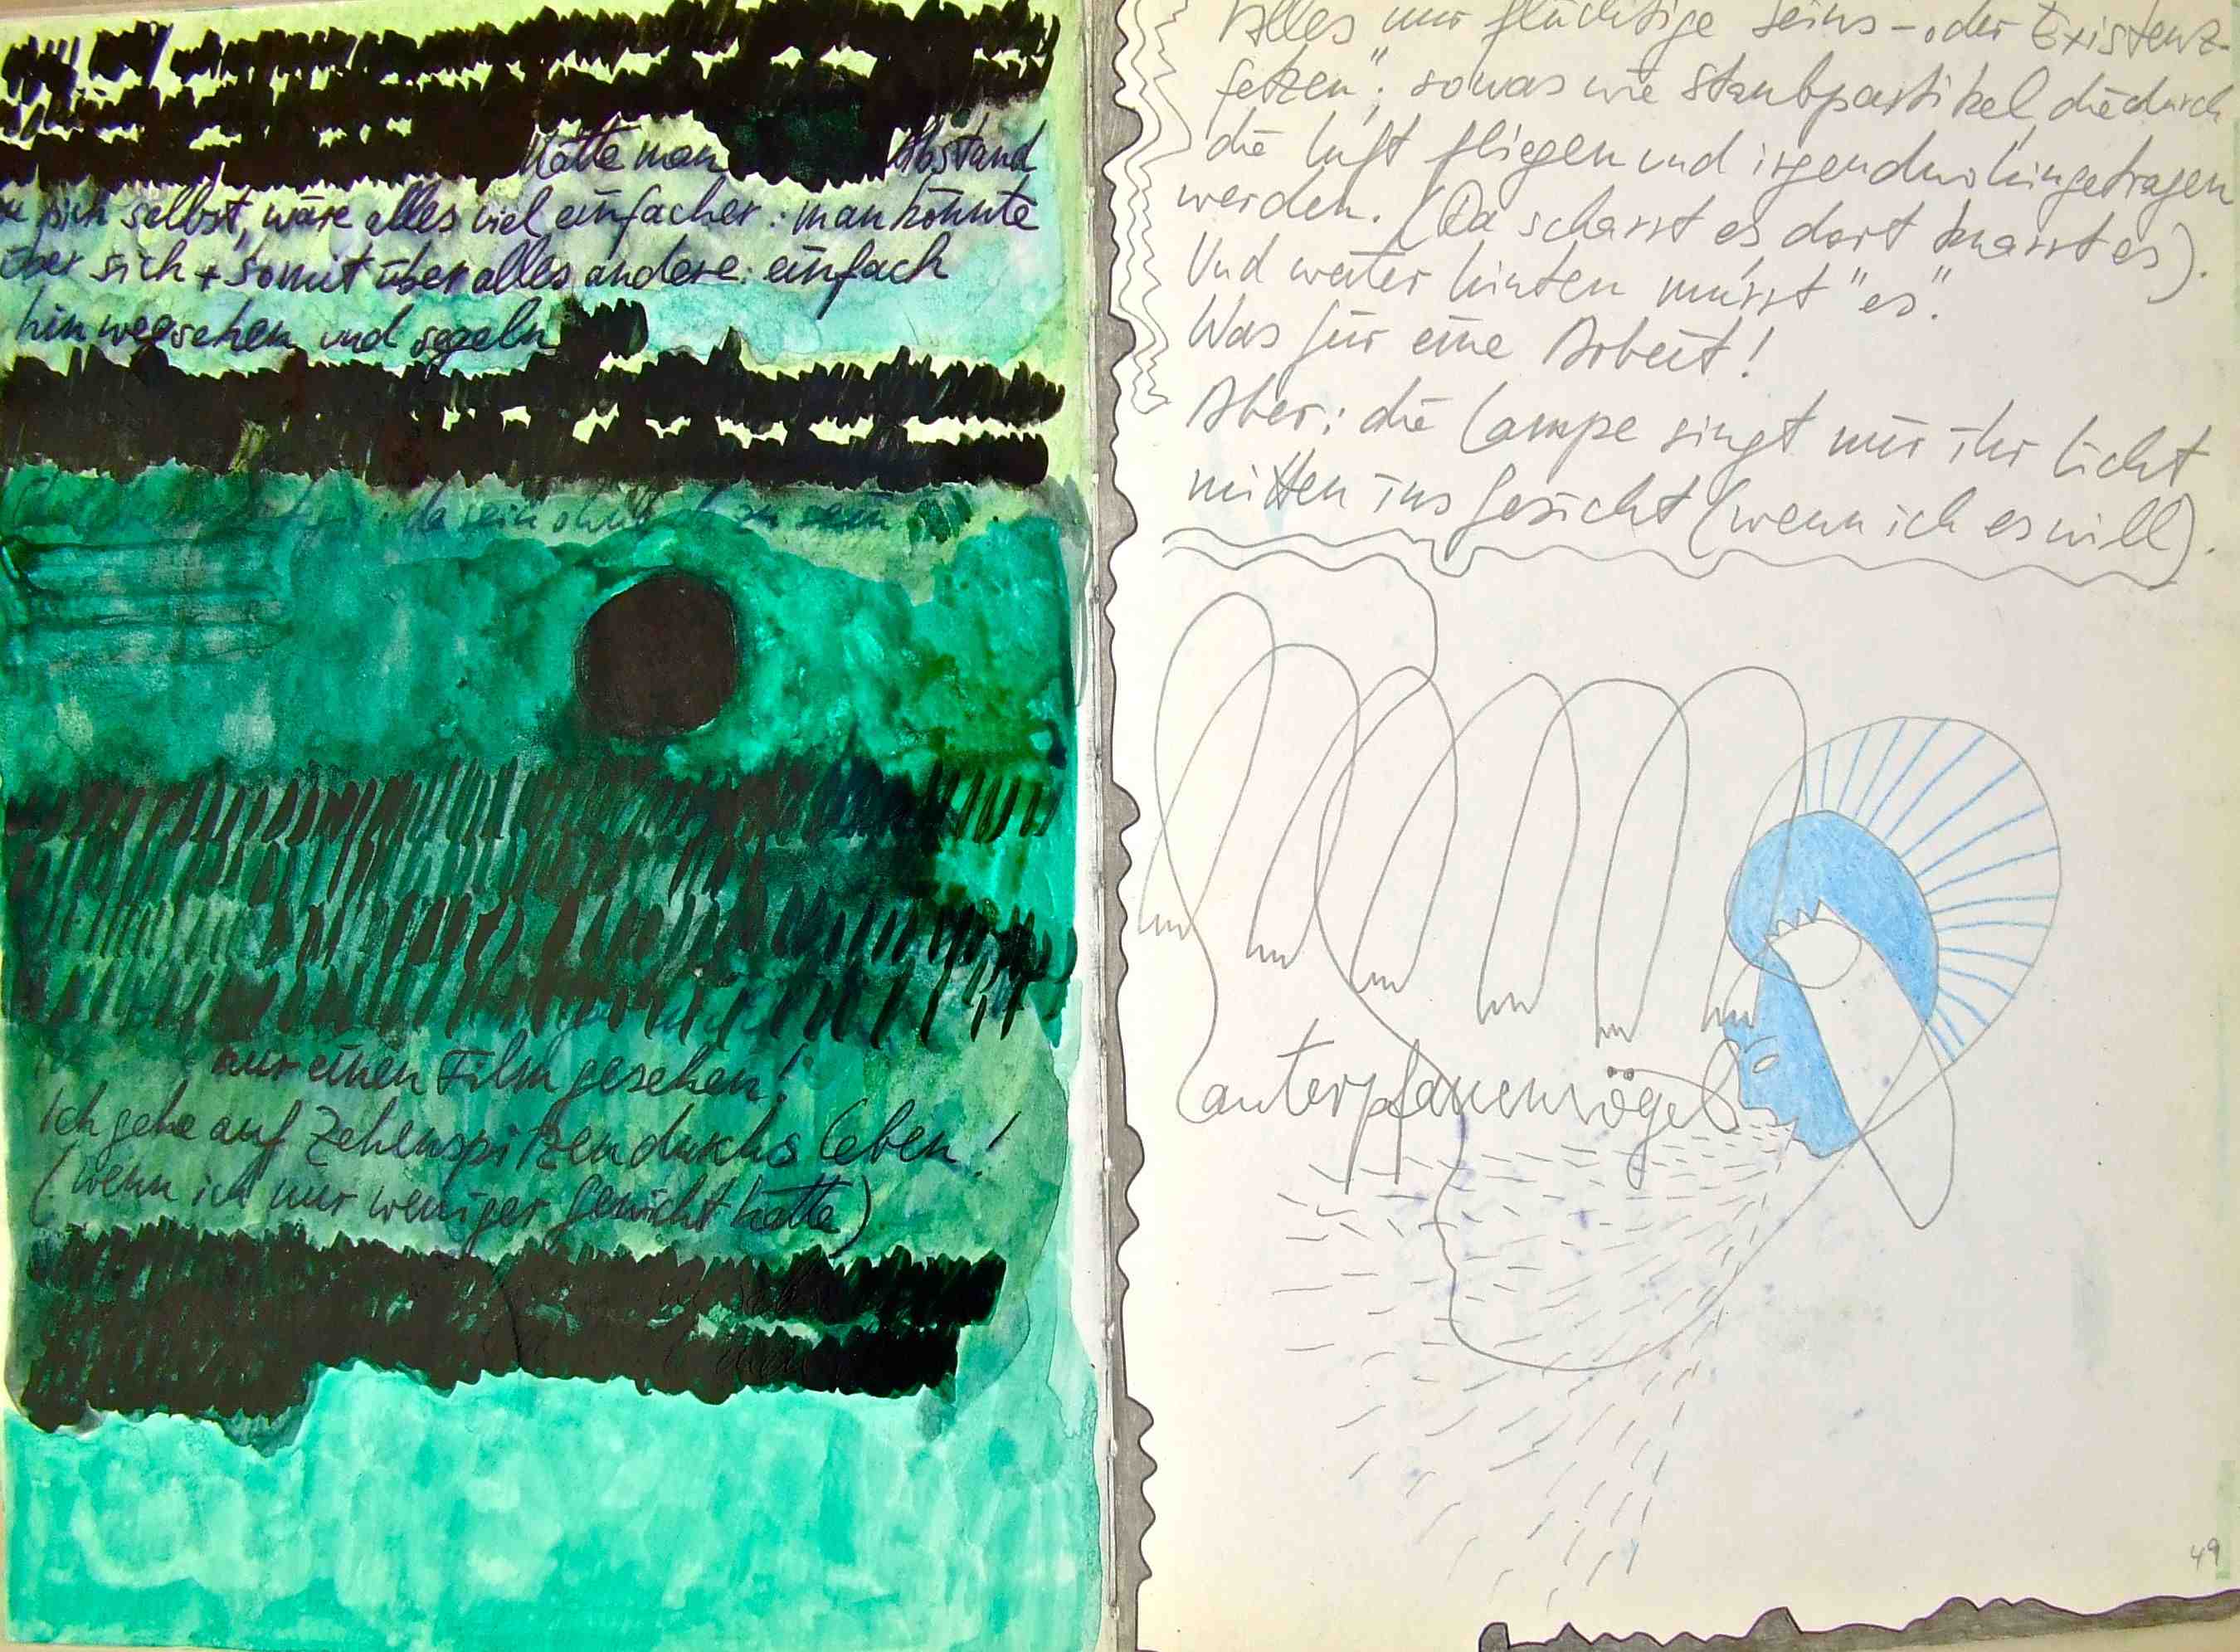 Hätte man Abstand
zu sich selbst, wäre alles viel einfacher: man könnte
über sich + somit über alles andere: einfach
hinwegsehen und segeln
da sein ohne zu sein
nur einen Film gesehen!
Ich gehe auf Zehenspitzen durchs Leben!
(wenn ich nur weniger Gewicht hätte)
Alles nur flüchtige Seins- oder Existenz-
fetzen"; sowas wie Staubpartikel die durch
die Luft fliegen und irgendwo hingetragen
werden. (Da scharrt es dort knarrt es).
Und weiter hinten murrt "es".
Was für eine Arbeit!
Aber: die Lampe singt mir ihr Licht
mitten ins Gesicht (wenn ich es will).
49